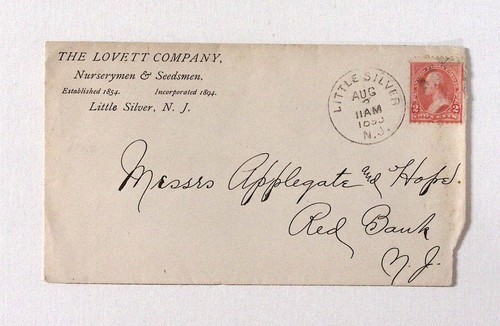 THE LOVETT COMPANY,
Nurserymen & Seedsmen.
Established 1854. Incorporated 1894.
Little Silver, N. J.
LITTLE SILVER
AUG
2
11AM
N.J.
2 2
Messrs Applegate and Hope.
Red Bank
N. J.